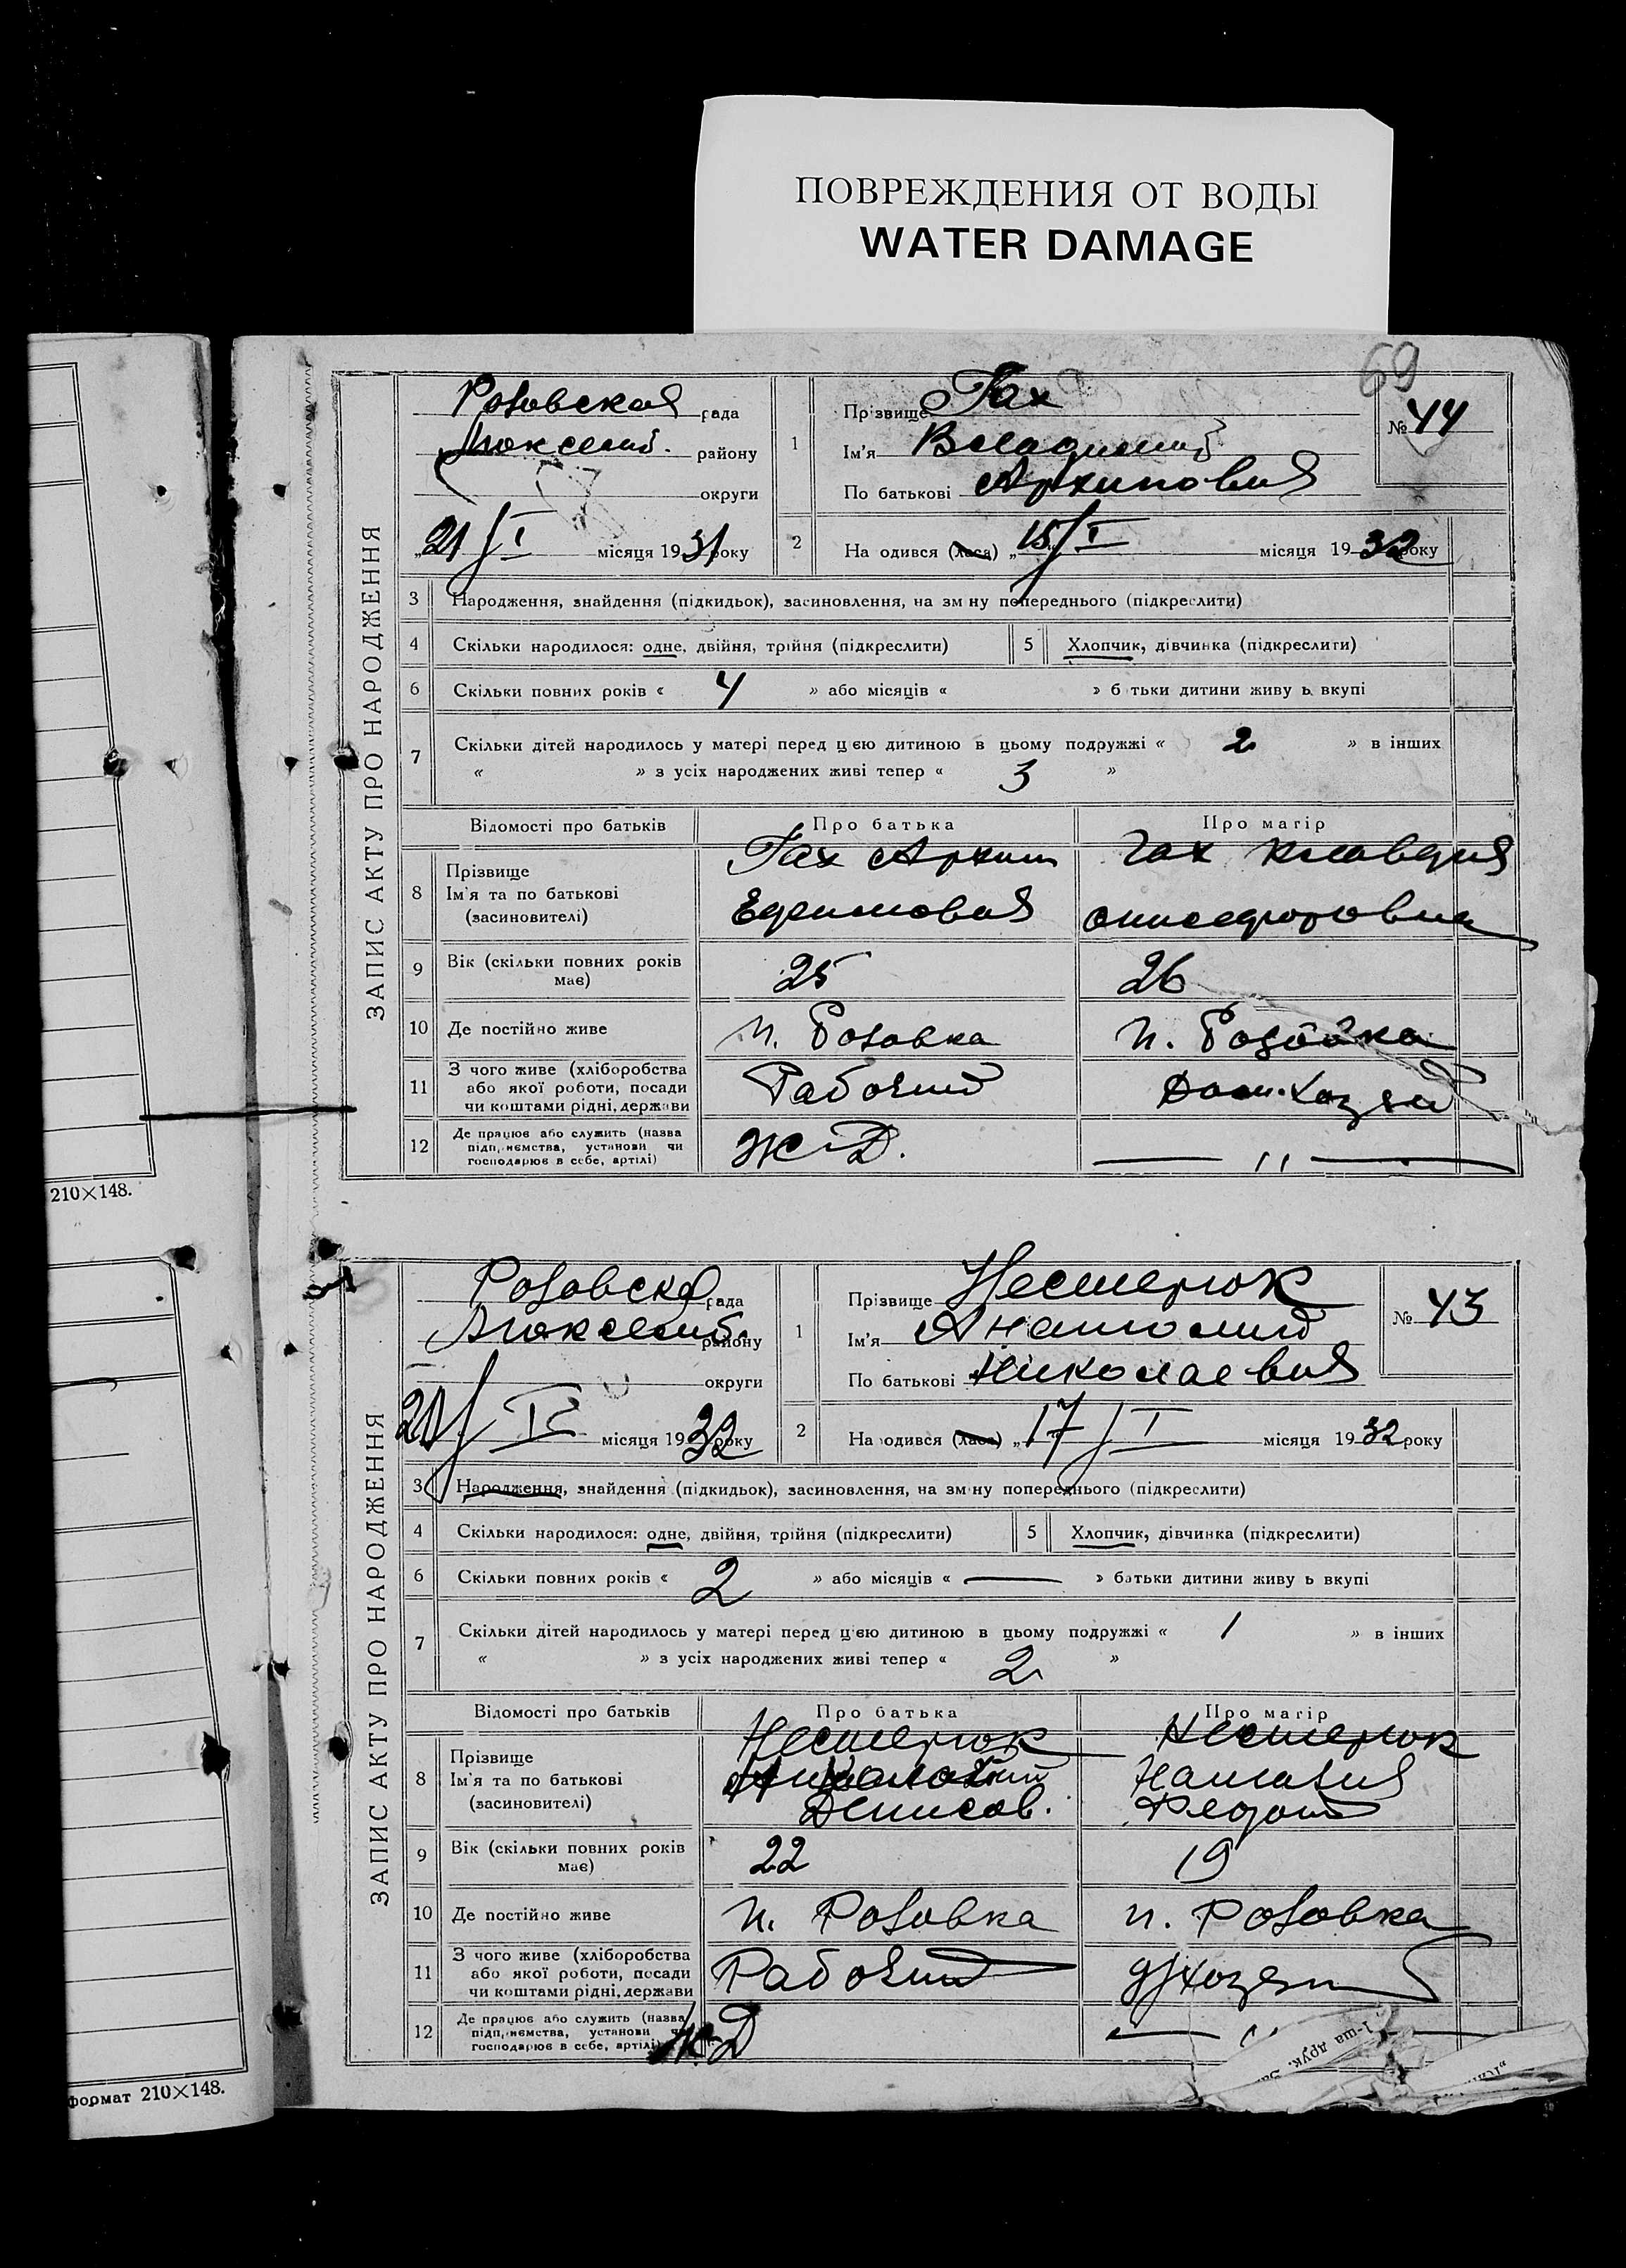 ПОВРЕЖДЕНИЯ ОТ ВОДЫ
WATER DAMAGE
69
ЗАПИС АКТУ ПРО НАРОДЖЕННЯ
Розовская рада
Люксемб. району
округи
21/I місяця 1931 року
1
Прізвище Гах
Ім'я Владимир
По батькові Архипович
№ 44
2 На одився (лася) „15/I місяця 1932 року
3 Народження, знайдення (підкидьок), засиновлення, на зм ну попереднього (підкреслити)
4 Скільки народилося: одне, двійня, трійня (підкреслити) 5 Хлопчик, дівчинка (підкреслити)
6 Скільки повних років « 4 » або місяців « » б тьки дитини живу ь вкупі
7 Скільки дітей народилось у матері перед цією дитиною в цьому подружжі « 2 » в інших
« » з усіх народжених живі тепер « 3 »
Відомості про батьків Про батька Про матір
8 Прізвище
Ім'я та по батькові
(засиновителі)
Гах Архип
Гах Клавдия
9 Вік (скільки повних років має) 25 26
10 Де постійно живе п. Розовка п. Розовка
11 З чого живе (хліборобства
або якої роботи, посади
чи коштами рідні, держави
Рабочий
Дом.хозяй
12 Де працює або служить (назва
підп,иємства, установи чи
господарює в себе, артілі)
Ж-Д.
— " —
210×148.
ЗАПИС АКТУ ПРО НАРОДЖЕННЯ
Розовска рада
Люксемб. району
округи
21/I місяця 1932 року
1
Прізвище Нестерюк
Ім'я Анатолий
По батькові Николаевич
№ 43
2 На одився (лася) „17/I місяця 1932 року
3 Народження, знайдення (підкидьок), засиновлення, на зм ну попереднього (підкреслити)
4 Скільки народилося: одне, двійня, трійня (підкреслити) 5 Хлопчик, дівчинка (підкреслити)
6 Скільки повних років « 2 » або місяців « — » батьки дитини живу ь вкупі
7 Скільки дітей народилось у матері перед цією дитиною в цьому подружжі « 1 » в інших
« » з усіх народжених живі тепер « 2 »
Відомості про батьків Про батька Про матір
8 Прізвище
Ім'я та по батькові
(засиновителі)
Нестерюк
Денисов.
Нестерюк
Наталия
9 Вік (скільки повних років має) 22 19
10 Де постійно живе п. Розовка п. Розовка
11 З чого живе (хліборобства
або якої роботи, посади
чи коштами рідні, держави
Рабочий
д/хозяй
12 Де працює або служить (назва
підп,иємства, установи чи
господарює в себе, артілі)
Ж-Д
— " —
1-ша друк.
формат 210×148.